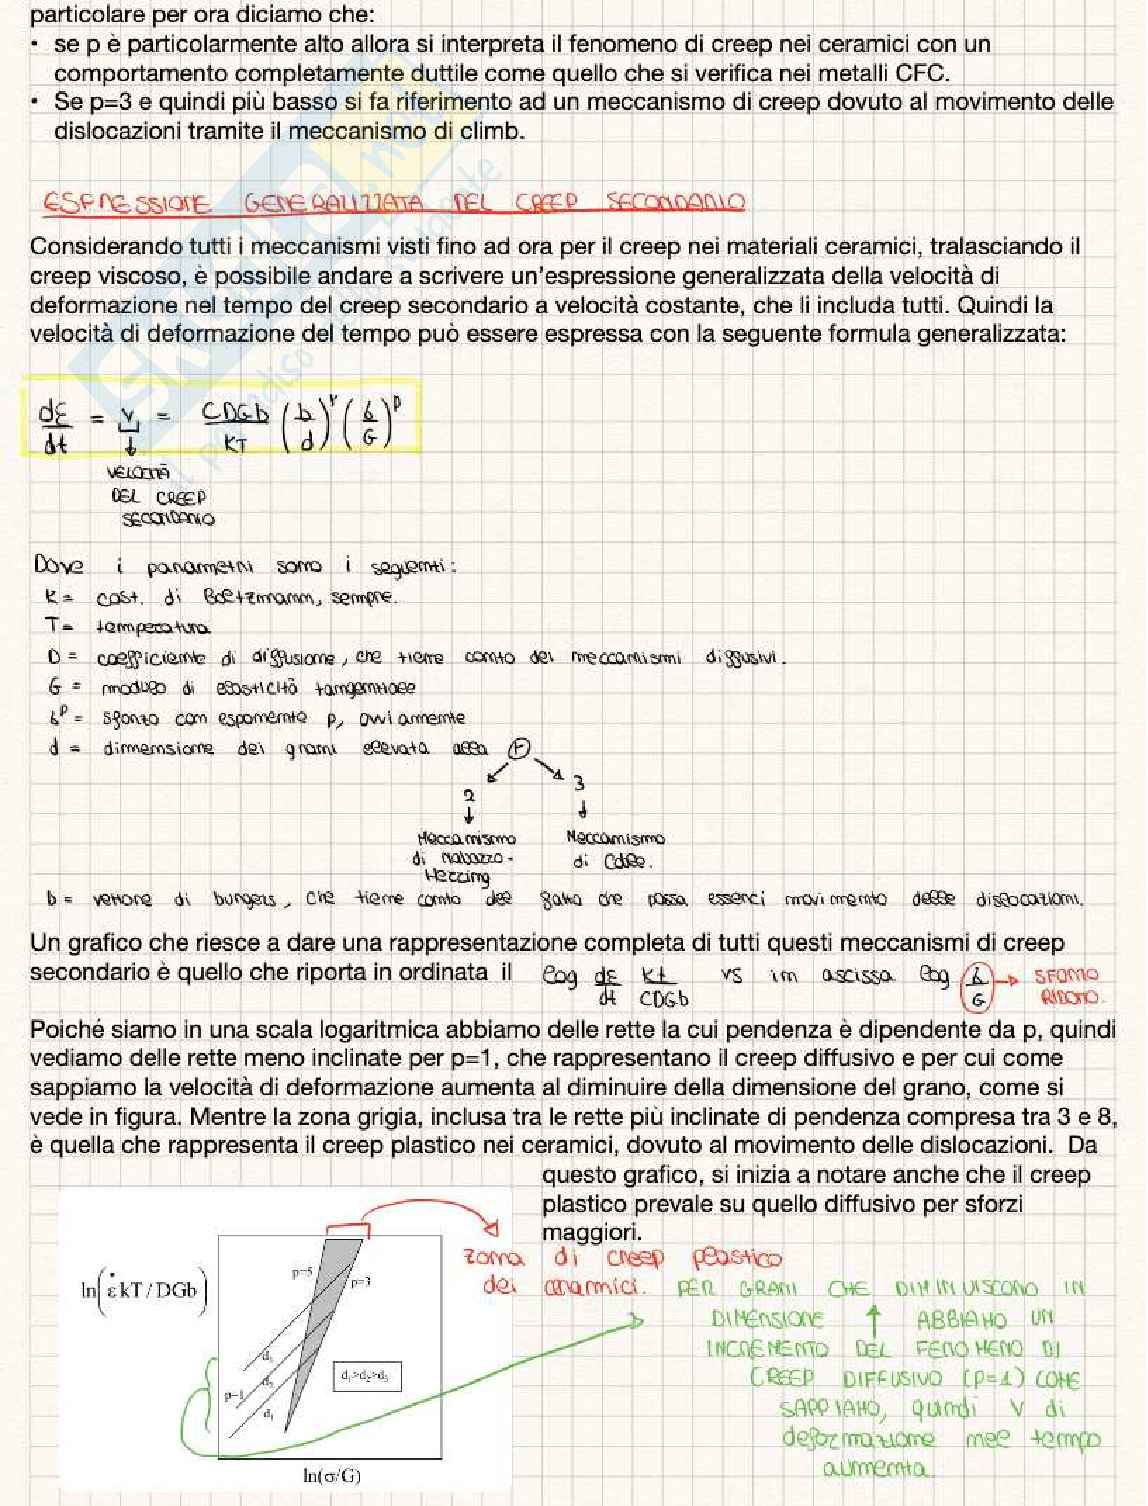 particolare per ora diciamo che:
• se p è particolarmente alto allora si interpreta il fenomeno di creep nei ceramici con un
comportamento completamente duttile come quello che si verifica nei metalli CFC.
• Se p=3 e quindi più basso si fa riferimento ad un meccanismo di creep dovuto al movimento delle
dislocazioni tramite il meccanismo di climb.
ESPRESSIONE GENERALIZZATA DEL CREEP SECONDARIO
Considerando tutti i meccanismi visti fino ad ora per il creep nei materiali ceramici, tralasciando il
creep viscoso, è possibile andare a scrivere un'espressione generalizzata della velocità di
deformazione nel tempo del creep secondario a velocità costante, che li includa tutti. Quindi la
velocità di deformazione del tempo può essere espressa con la seguente formula generalizzata:
dε/dt = v = CDGb/KT (b/d)^r (σ/G)^p
VELOCITÀ
DEL CREEP
SECONDARIO
Dove i parametri sono i seguenti:
K = cost. di Boltzmann, sempre.
T = temperatura
D = coefficiente di diffusione, che tiene conto dei meccanismi diffusivi.
G = modulo di elasticità tangenziale
σ^p = sforzo con esponente p, ovviamente
d = dimensione dei grani elevata alla r
2 3
Meccanismo Meccanismo
di Nabarro- di Coble.
Herring
b = vettore di burgers, che tiene conto del fatto che possa esserci movimento delle dislocazioni.
Un grafico che riesce a dare una rappresentazione completa di tutti questi meccanismi di creep
secondario è quello che riporta in ordinata il log dε/dt kt/CDGb vs in ascissa log σ/G → SFORZO
RIDOTTO.
Poiché siamo in una scala logaritmica abbiamo delle rette la cui pendenza è dipendente da p, quindi
vediamo delle rette meno inclinate per p=1, che rappresentano il creep diffusivo e per cui come
sappiamo la velocità di deformazione aumenta al diminuire della dimensione del grano, come si
vede in figura. Mentre la zona grigia, inclusa tra le rette più inclinate di pendenza compresa tra 3 e 8,
è quella che rappresenta il creep plastico nei ceramici, dovuto al movimento delle dislocazioni. Da
questo grafico, si inizia a notare anche che il creep
plastico prevale su quello diffusivo per sforzi
maggiori.
zona di creep plastico
dei ceramici.
PER GRANI CHE DIMINUISCONO IN
DIMENSIONE ↑ ABBIAMO UN
INCREMENTO DEL FENOMENO DI
CREEP DIFFUSIVO (P=1) COME
SAPPIAMO, quindi v di
deformazione nel tempo
aumenta.
ln(ε̇kT/DGb)
p=5
p=3
d₃
d₂
d₁
p=1
d₁>d₂>d₃
ln(σ/G)